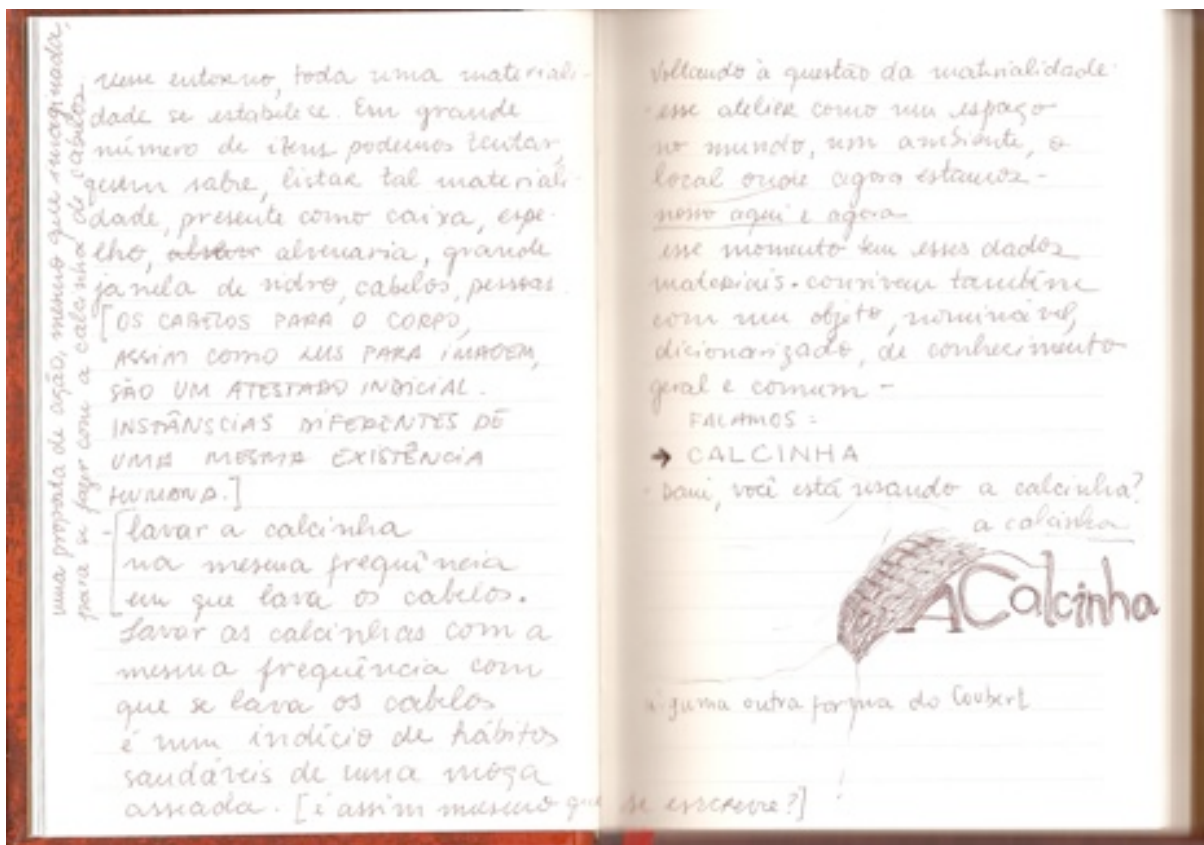 uma proposta de ação, mesmo que imaginada,
para se fazer com a calcinha de cabelos.
num entorno, toda uma materiali-
dade se estabelece. Em grande
número de itens podemos tentar,
quem sabe, listar tal materiali-
dade, presente como caixa, espe-
lho, alvenaria, grande
janela de vidro, cabelos, pessoas.
[OS CABELOS PARA O CORPO,
ASSIM COMO LUS PARA IMAGEM,
SÃO UM ATESTADO INDICIAL.
INSTÂNSCIAS DIFERENTES DE
UMA MESMA EXISTÊNCIA
HUMANA.]
- lavar a calcinha
na mesma frequência
em que lava os cabelos.
Lavar as calcinhas com a
mesma frequência com
que se lava os cabelos
é num indício de hábitos
saudáveis de uma moça
asseada. [é assim mesmo que se escreve?]
Voltando à questão da materialidade
esse atelier como um espaço
no mundo, um ambiente, o
local onde agora estamos -
nosso aqui e agora
esse momento tem esses dados
materiais. convivem também
com um objeto, nominável,
dicionarizado, de conhecimento
geral e comum -
FALAMOS:
→ CALCINHA
- Dani, você está usando a calcinha?
a calcinha
A Calcinha
alguma outra forma do Coubert